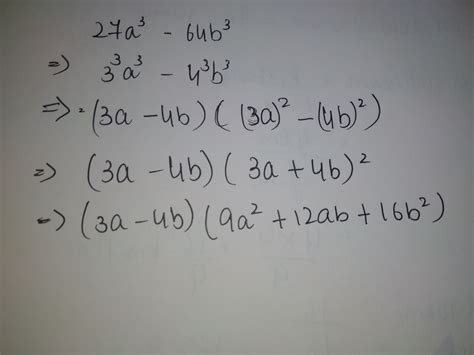 27a³ - 64b³
=> 3³a³ - 4³b³
=> = (3a - 4b) ( (3a)² - (4b)² )
=> (3a - 4b) ( 3a + 4b )²
=> (3a - 4b) ( 9a² + 12ab + 16b² )